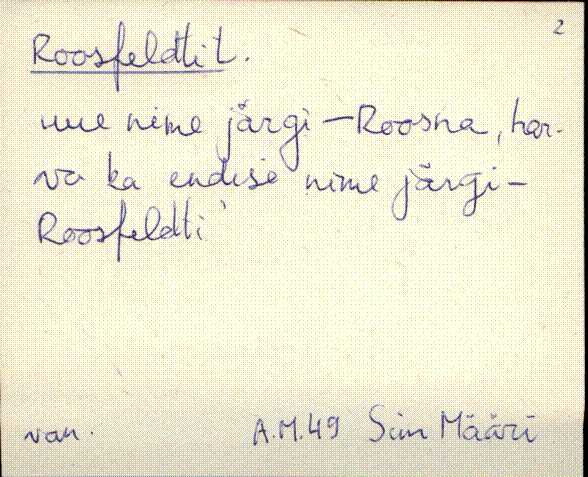 2
Roosfeldti t.
uue nime järgi – Roosna, har-
va ka endise nime järgi –
Roosfeldti'
van.
A.M.49 Siim Määri